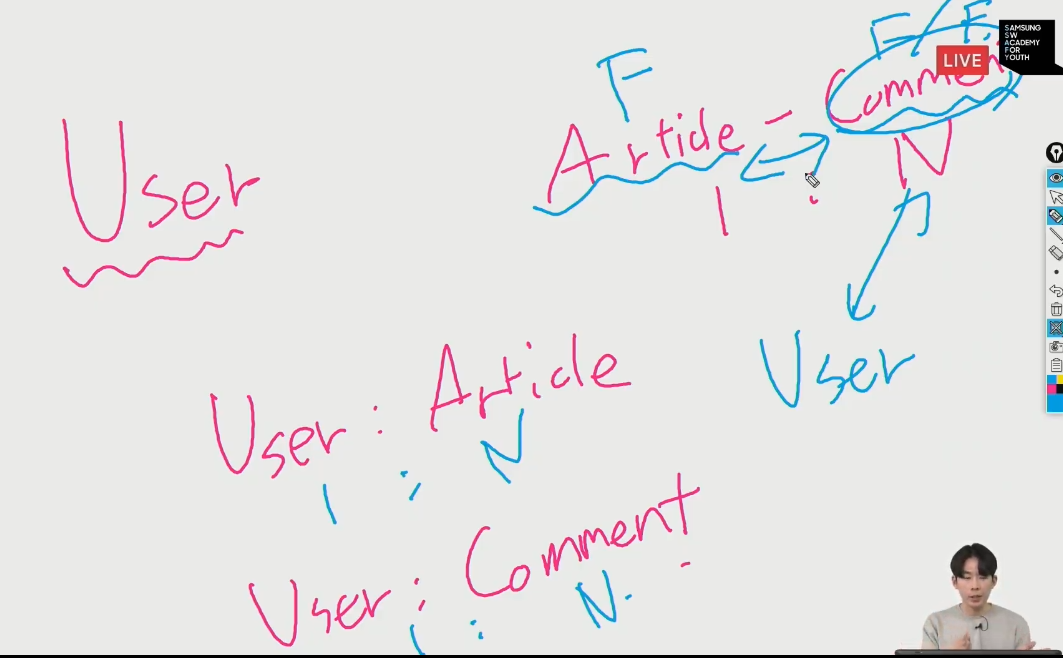 F / F.
SAMSUNG
SW
ACADEMY
FOR
YOUTH
LIVE
F
Article - Commen
1 : N
User
User
User : Article
1 : N
User : Comment
1 : N